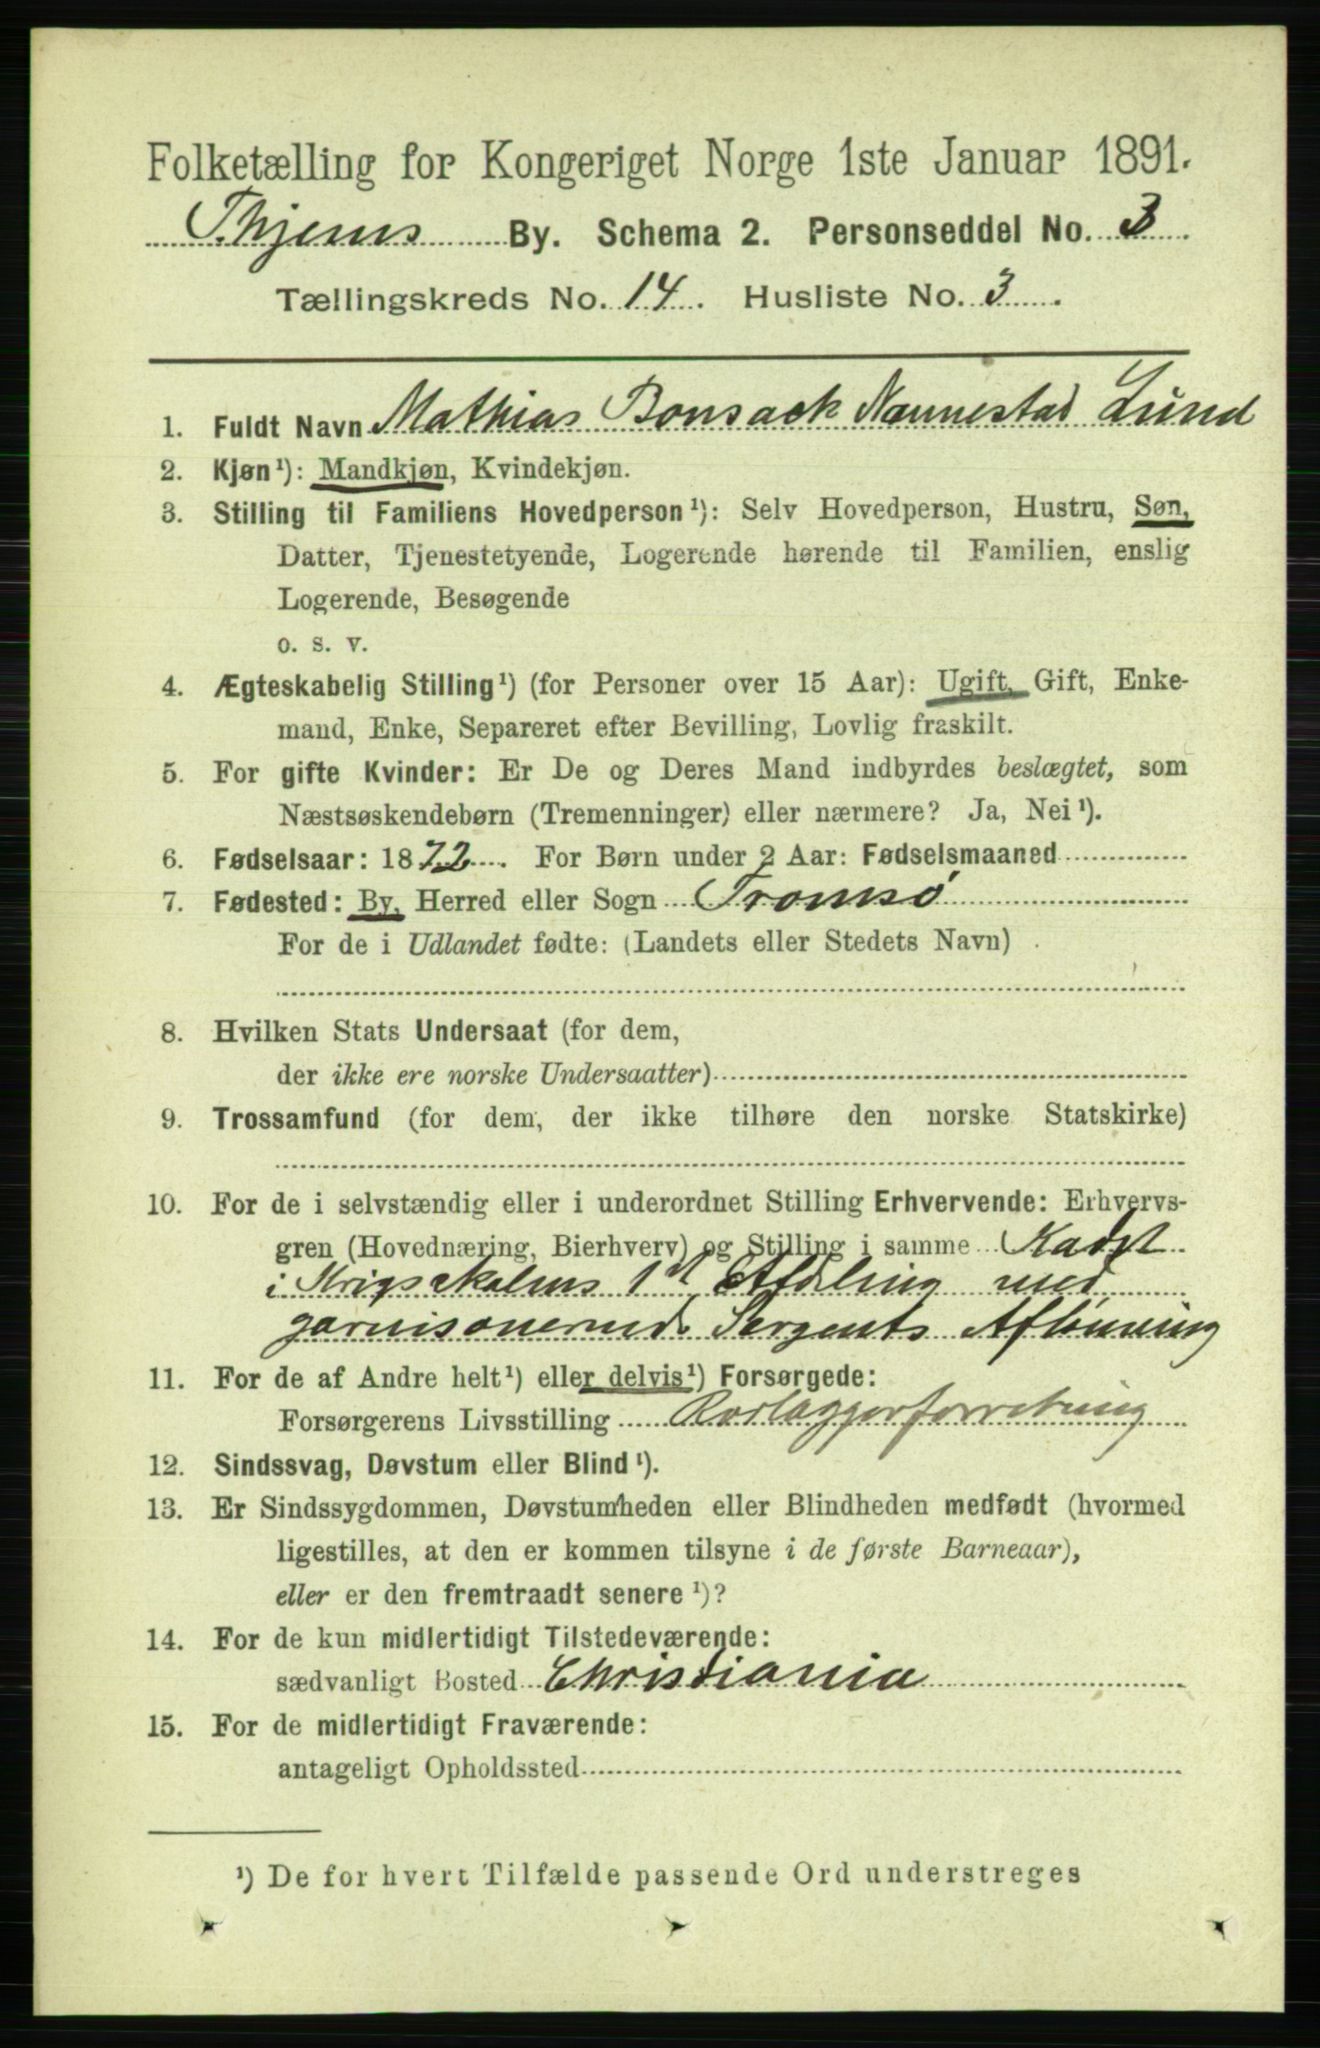 Folketælling for Kongeriget Norge 1ste Januar 1891.
Thjems By. Schema 2. Personseddel No. 3
Tællingskreds No. 14. Husliste No. 3.
1. Fuldt Navn Mathias Bonsack Nannestad Lund
2. Kjøn¹): Mandkjøn, Kvindekjøn.
3. Stilling til Familiens Hovedperson¹): Selv Hovedperson, Hustru, Søn,
Datter, Tjenestetyende, Logerende hørende til Familien, enslig
Logerende, Besøgende
o. s. v.
4. Ægteskabelig Stilling¹) (for Personer over 15 Aar): Ugift, Gift, Enke-
mand, Enke, Separeret efter Bevilling, Lovlig fraskilt.
5. For gifte Kvinder: Er De og Deres Mand indbyrdes beslægtet, som
Næstsøskendebørn (Tremenninger) eller nærmere? Ja, Nei¹).
6. Fødselsaar: 1872. For Børn under 2 Aar: Fødselsmaaned
7. Fødested: By, Herred eller Sogn Tromsø
For de i Udlandet fødte: (Landets eller Stedets Navn)
8. Hvilken Stats Undersaat (for dem,
der ikke ere norske Undersaatter)
9. Trossamfund (for dem, der ikke tilhøre den norske Statskirke)
10. For de i selvstændig eller i underordnet Stilling Erhvervende: Erhvervs-
gren (Hovednæring, Bierhverv) og Stilling i samme Kadet
i Krigsskolens 1st Afdeling med
garnisonerende Sergents Aflønning
11. For de af Andre helt¹) eller delvis¹) Forsørgede:
Forsørgerens Livsstilling
12. Sindssvag, Døvstum eller Blind¹).
13. Er Sindssygdommen, Døvstumheden eller Blindheden medfødt (hvormed
ligestilles, at den er kommen tilsyne i de første Barneaar),
eller er den fremtraadt senere¹)?
14. For de kun midlertidigt Tilstedeværende:
sædvanligt Bosted Christiania
15. For de midlertidigt Fraværende:
antageligt Opholdssted
¹) De for hvert Tilfælde passende Ord understreges